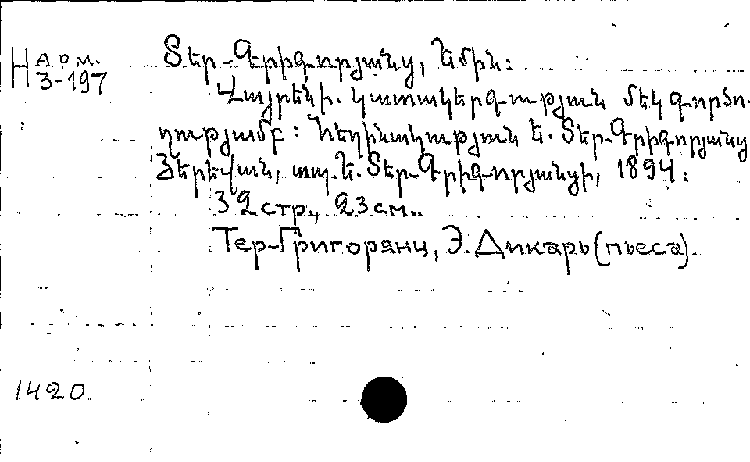 Н Арм.
3-197
Տեր-Գրիգորյանց, Եմին:
Վայրենի. կատակերգություն մեկ գործո-
ղությամբ: Հեղինակություն Ե. Տեր-Գրիգորյանց
Յերեվան, տպ. Ե. Տեր-Գրիգորյանցի, 1894:
32 стр., 23 см..
Тер-Григорянц, Э. Дикарь (пьеса).
1420